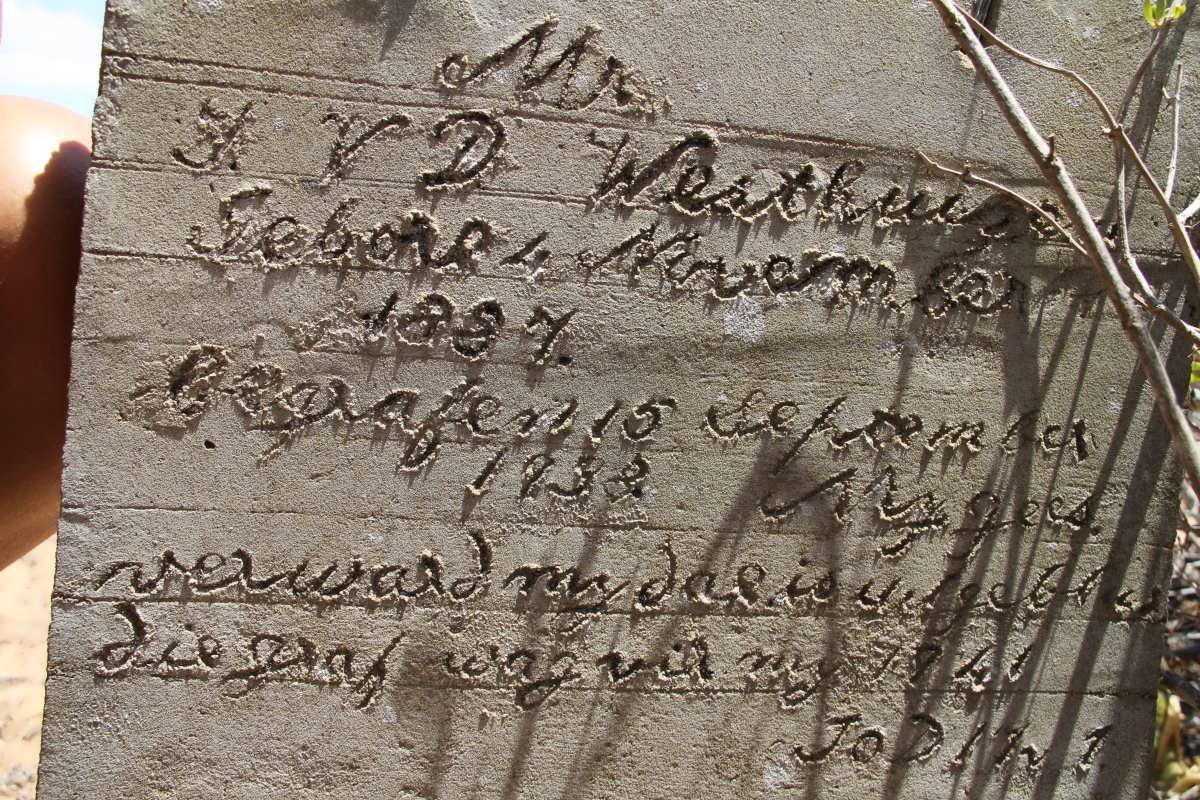 Mr
V D Westhuize
Gebore 4 November
1887.
Begrafen 15 September
1938 My gees
verward my dae is uitgeblus
die graf wag vir my
Job 17 v 1